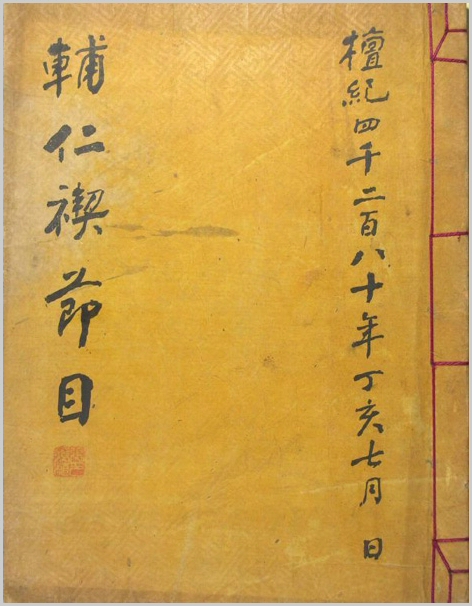 檀紀四千二百八十年丁亥七月 日
輔仁禊節目